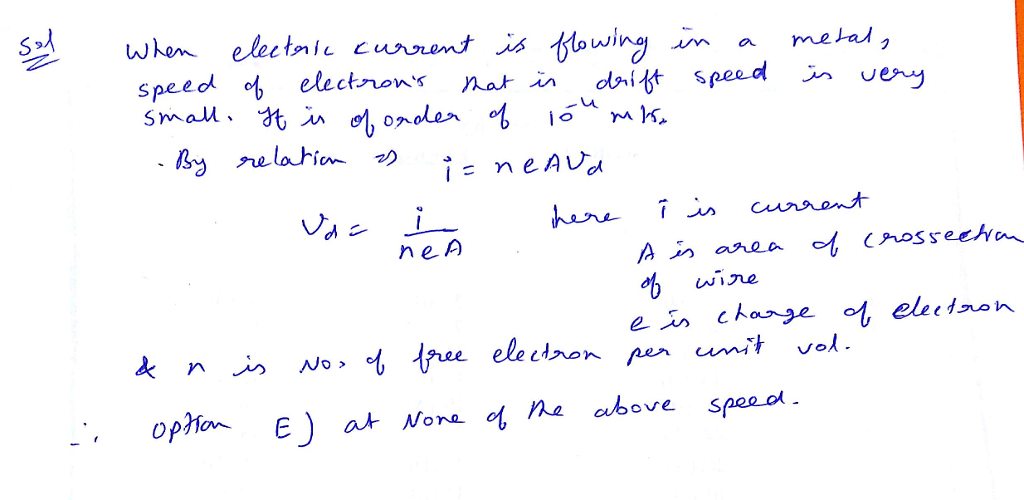 Sol
When electric current is flowing in a metal,
speed of electron's that is drift speed is very
small. It is of order of 10⁻⁴ m/s.
. By relation ⇒ i = neAVd
Vd = i/neA here i is current
A is area of crossection
of wire
e is charge of electron
& n is No. of free electron per unit vol.
∴ option E) at None of the above speed.